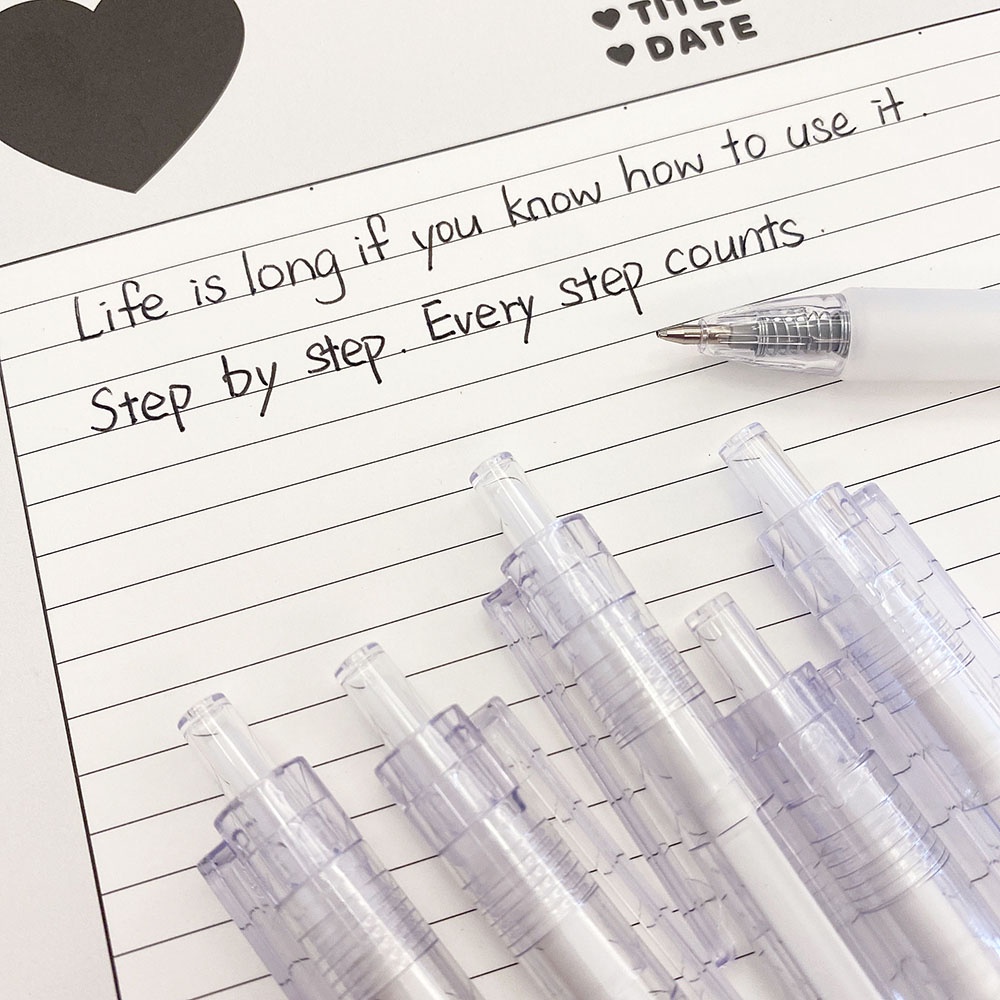 TITLE
DATE
Life is long if you know how to use it.
Step by step. Every step counts.